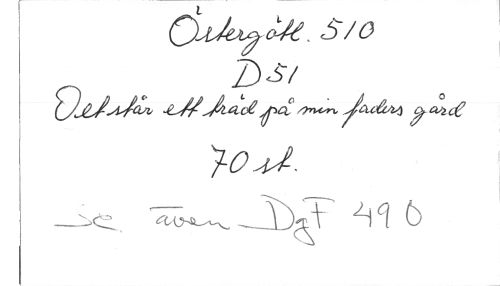 Östergötl. 510
D 51
Det står ett träd på min faders gård
70 st.
se. även DgF 490